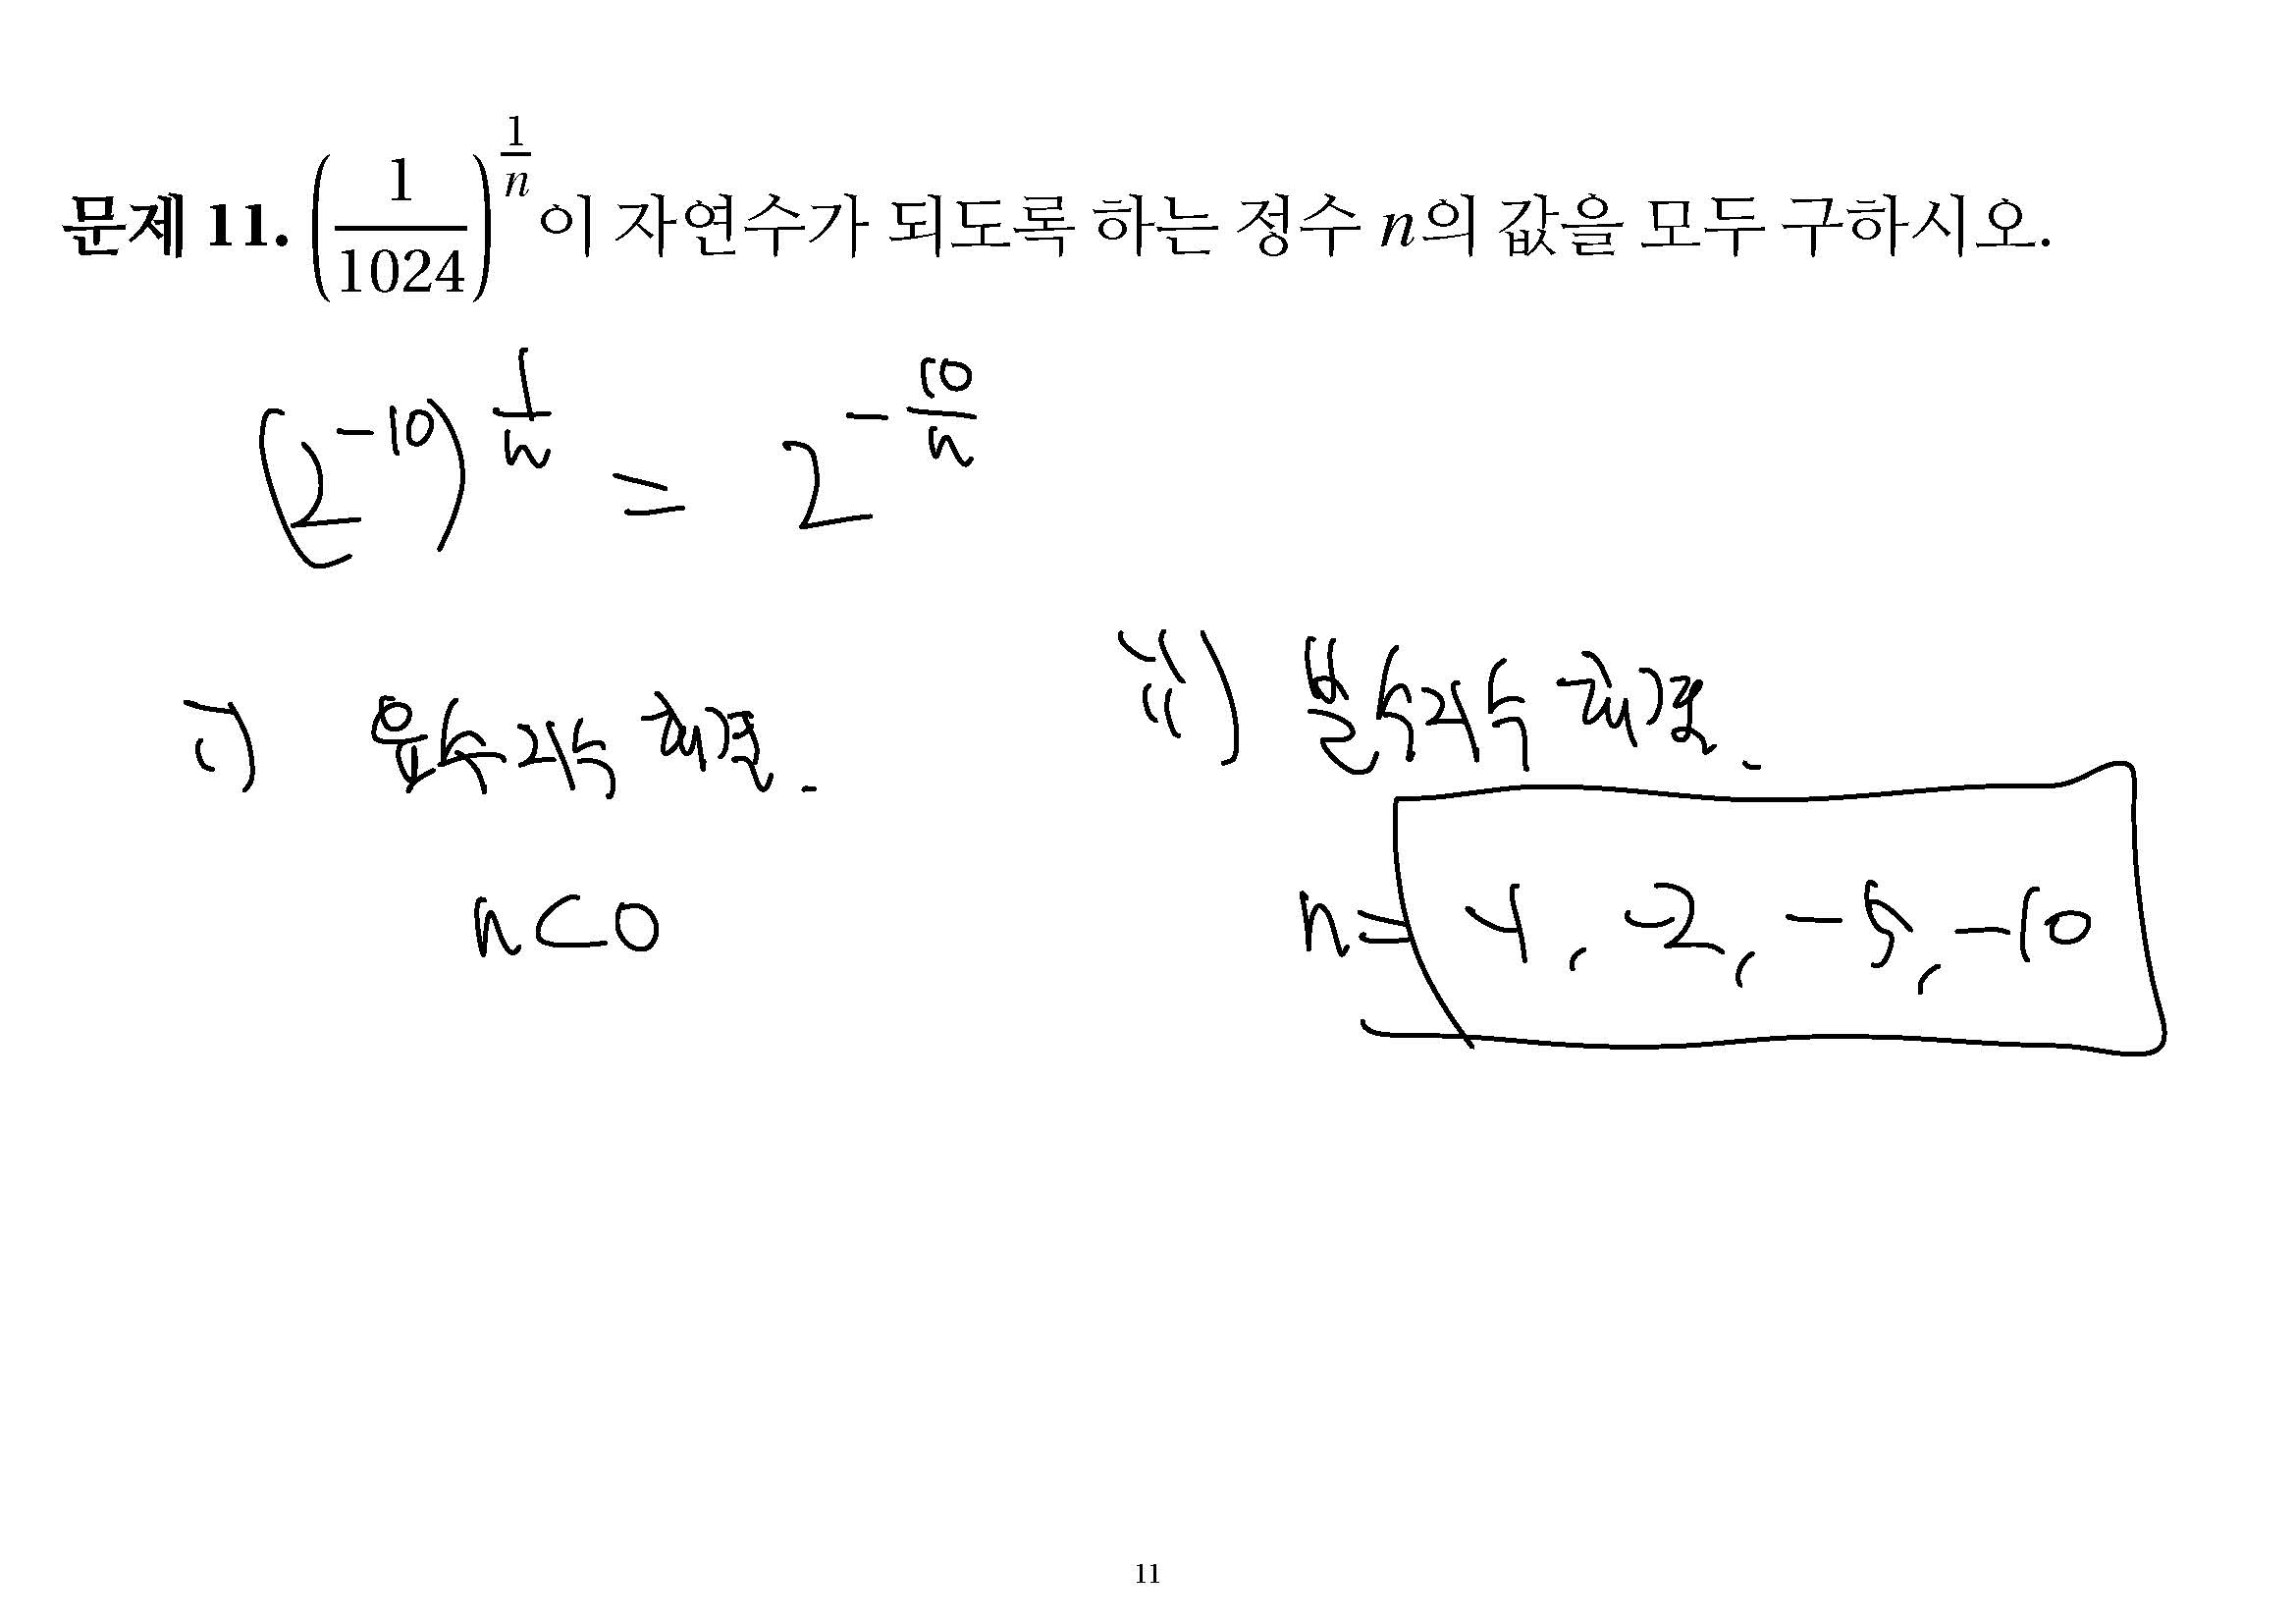 문제 11. $\left(\frac{1}{1024}\right)^{\frac{1}{n}}$이 자연수가 되도록 하는 정수 n의 값을 모두 구하시오.
$(2^{-10})^{\frac{1}{n}} = 2^{-\frac{10}{n}}$
i) 음수지수 해결.
n<0
ii) 분수지수 해결.
n = -1, -2, -5, -10
11